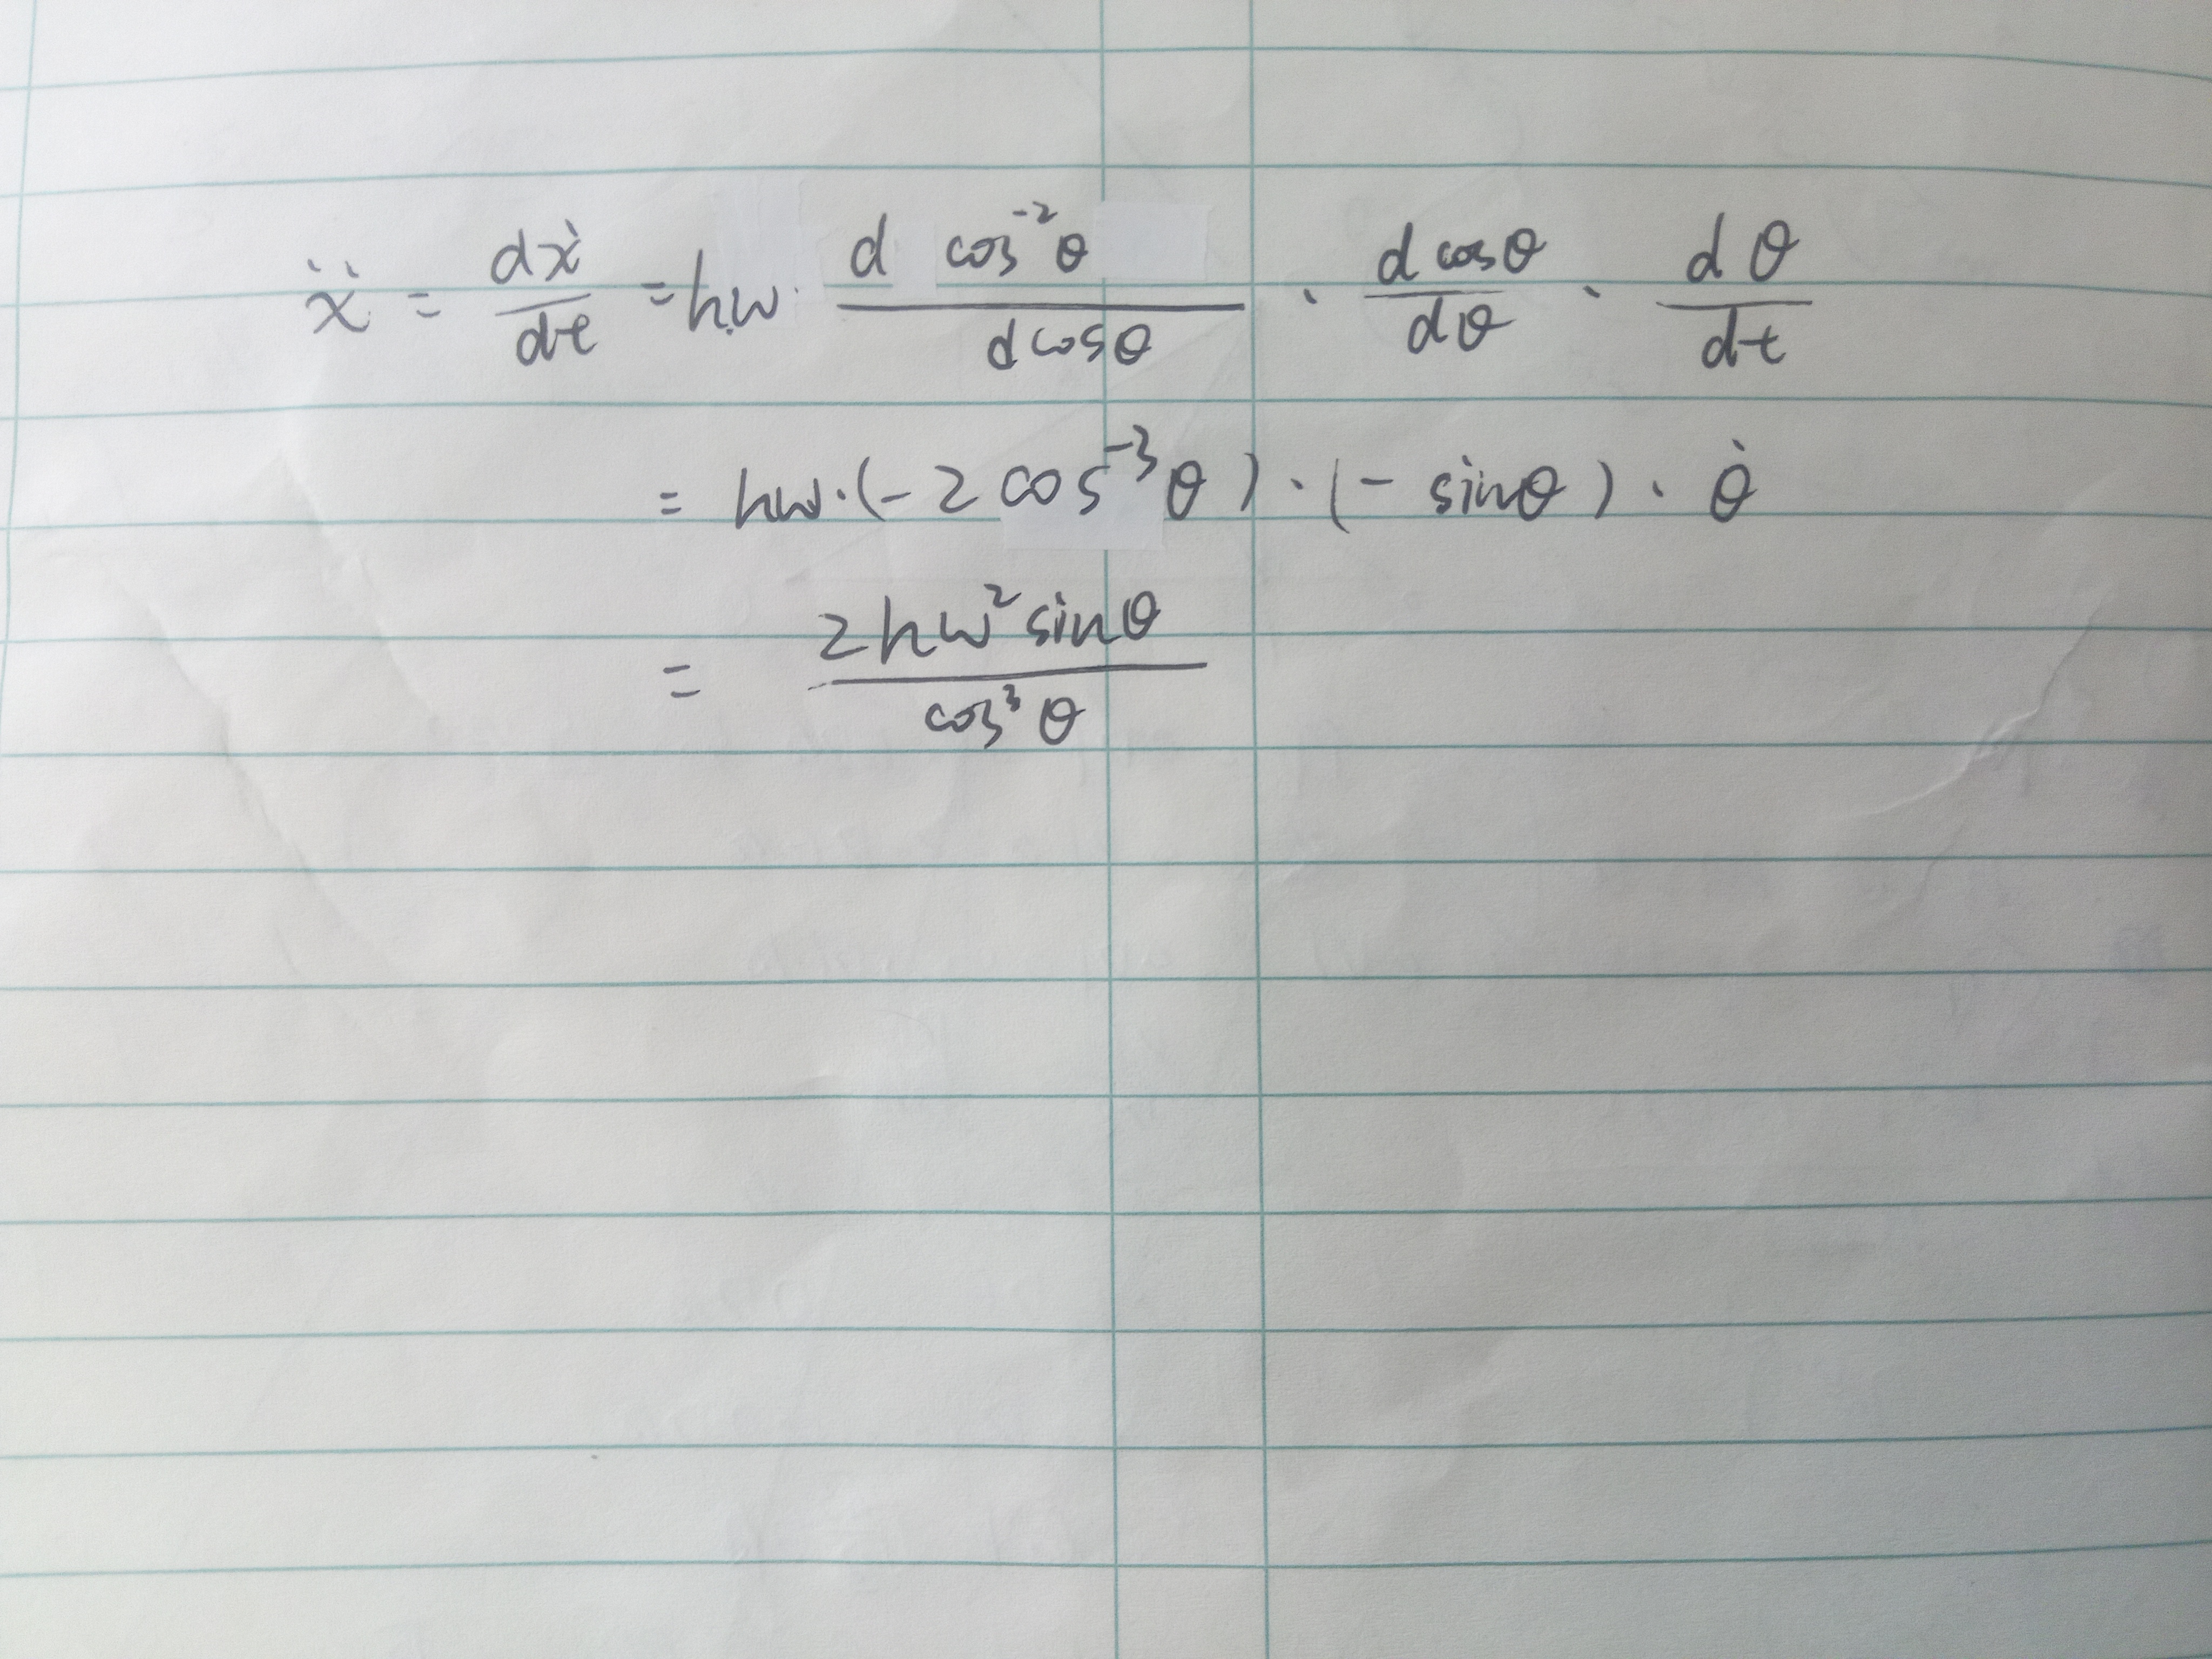 ẍ = dẋ/dt = hω · d cos⁻²θ / d cosθ · d cosθ / dθ · dθ / dt
= hω · (-2 cos⁻³θ) · (- sinθ) · θ̇
= 2hω² sinθ / cos³θ